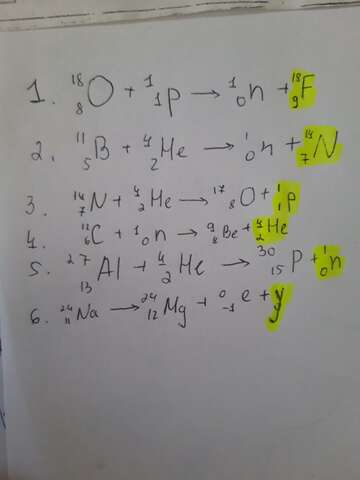 1. ¹⁸₈O + ¹₁p → ¹₀n + ¹⁸₉F
2. ¹¹₅B + ⁴₂He → ¹₀n + ¹⁴₇N
3. ¹⁴₇N + ⁴₂He → ¹⁷₈O + ¹₁p
4. ¹²₆C + ¹₀n → ⁹₈Be + ⁴₂He
5. ²⁷₁₃Al + ⁴₂He → ³⁰₁₅P + ¹₀n
6. ²⁴₁₁Na → ²⁴₁₂Mg + ⁰₋₁e + γ